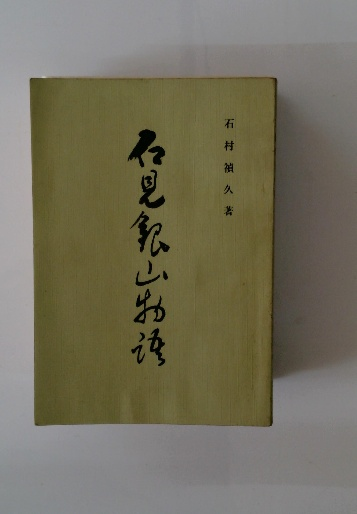 石村禎久著
石見銀山物語